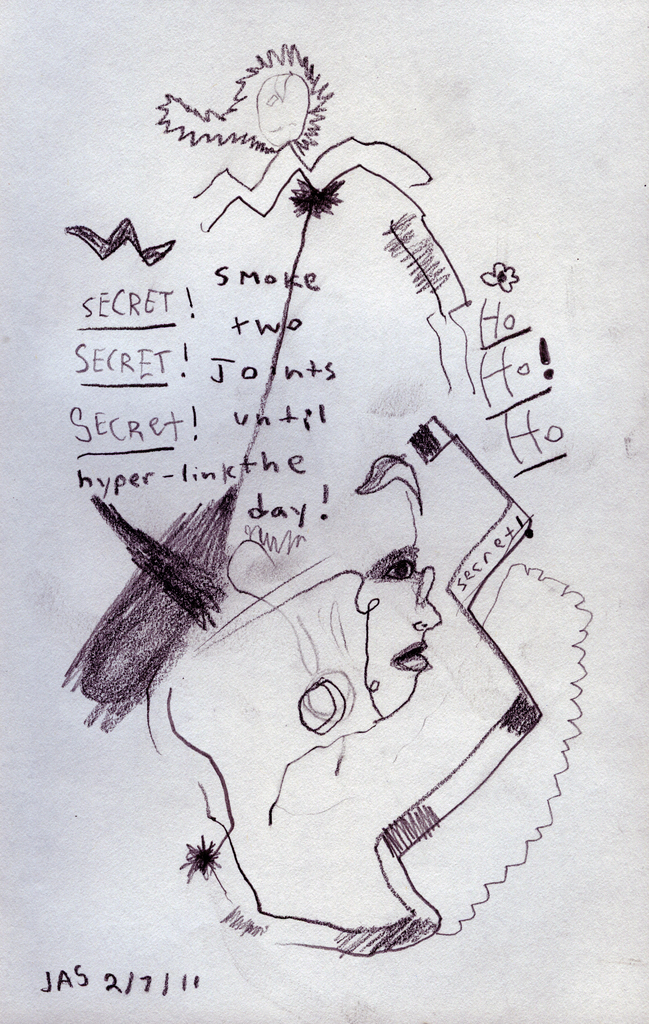 SECRET!
SECRET!
Secret!
hyper-link
smoke
two
Joints
until
the
day!
Ho
Ho!
Ho
secret!
JAS 2/7/11